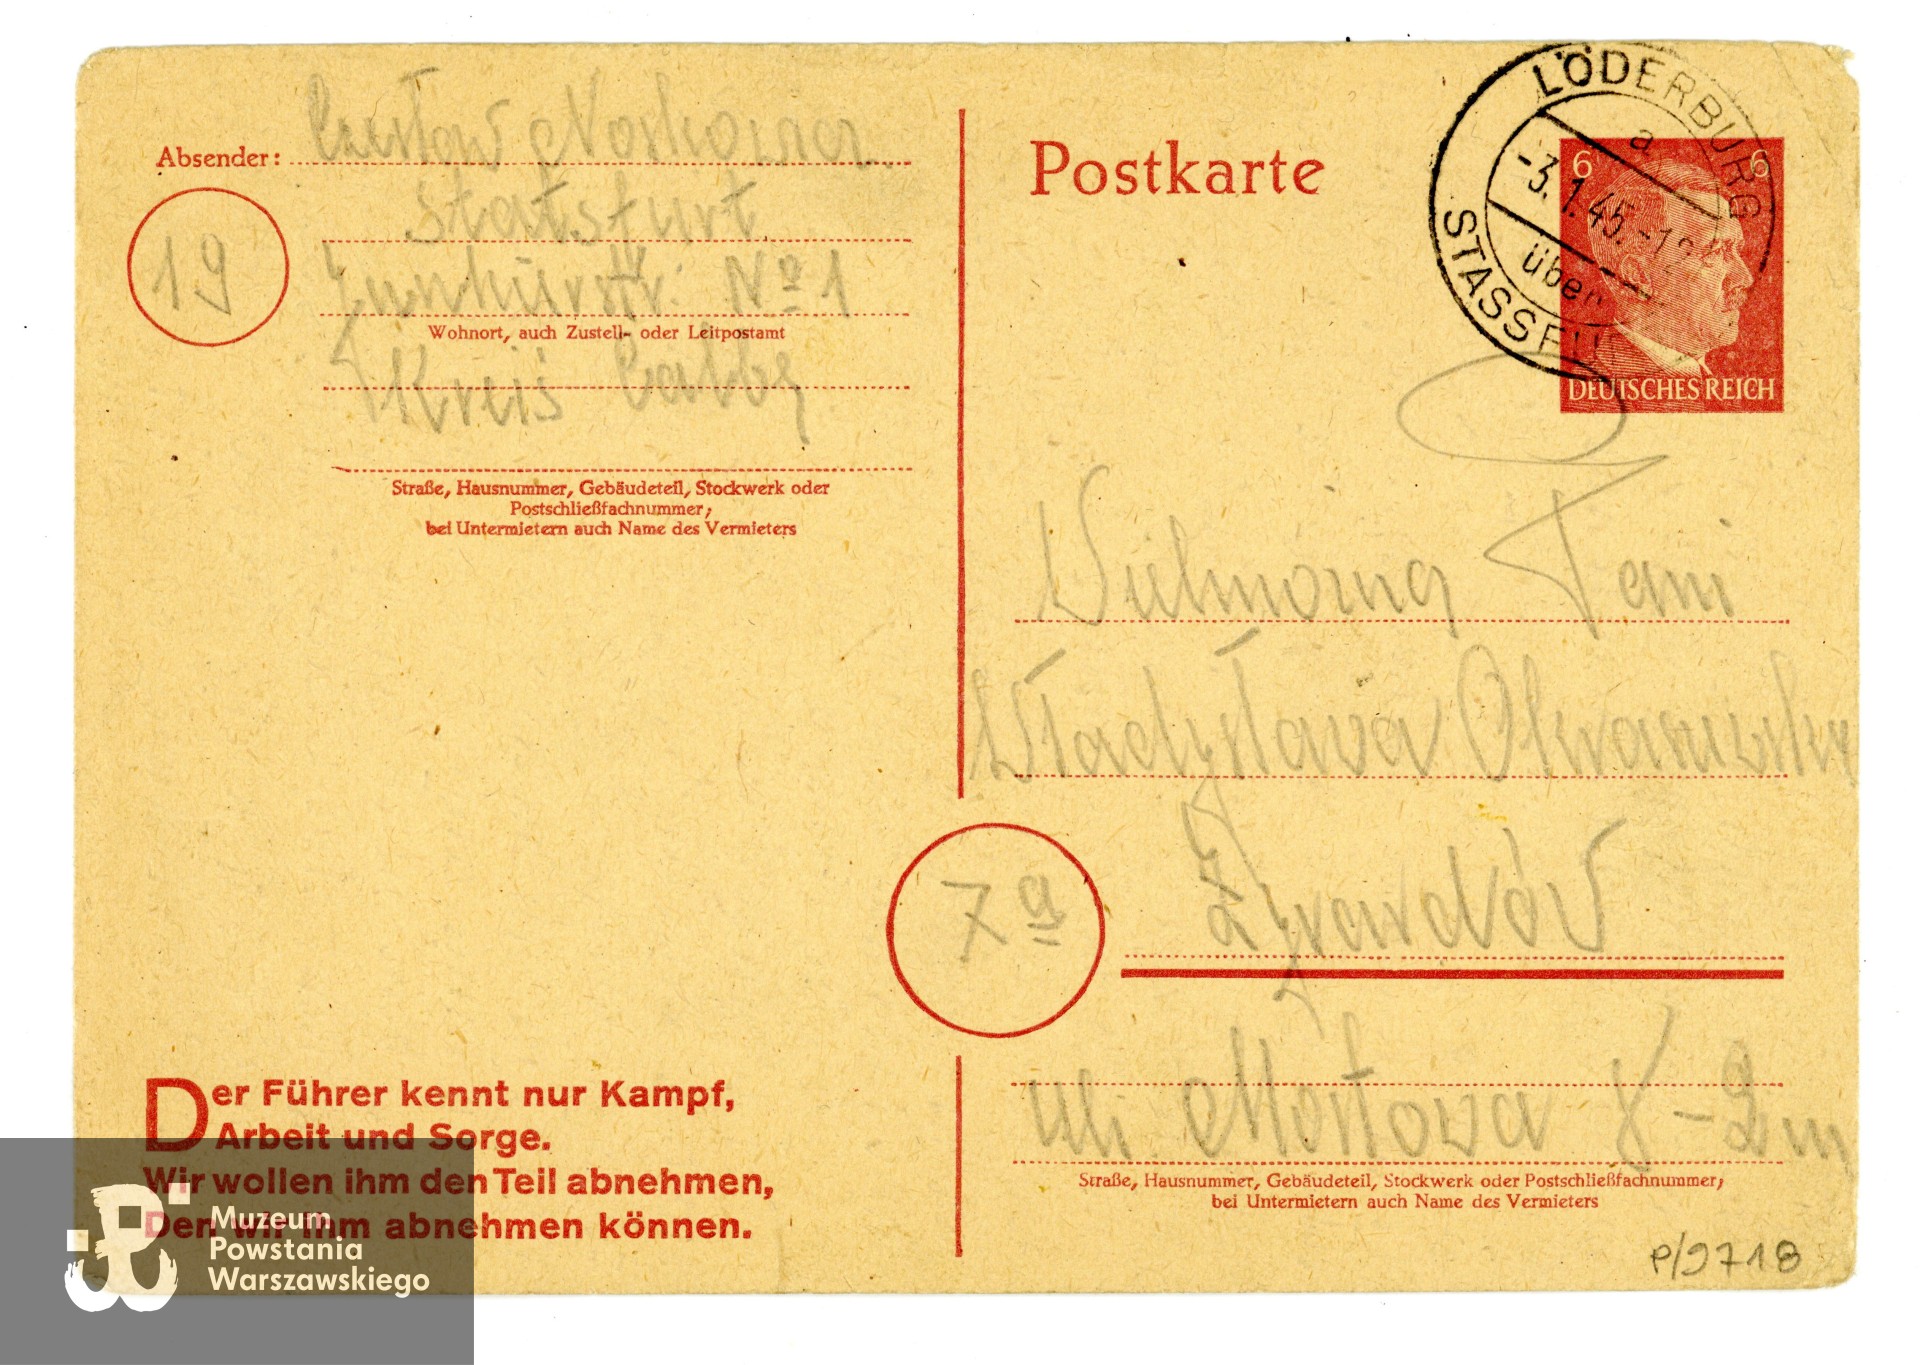 Absender: Gustaw
Statsfurt
19
Nº 1
Wohnort, auch Zustell- oder Leitpostamt
Kreis Calbe
Straße, Hausnummer, Gebäudeteil, Stockwerk oder
Postschließfachnummer;
bei Untermietern auch Name des Vermieters
Der Führer kennt nur Kampf,
Arbeit und Sorge.
Wir wollen ihm den Teil abnehmen,
Den wir ihm abnehmen können.
Postkarte
LÖDERBURG
a
-3.1.45.-12
über
STASSFU
6 6
DEUTSCHES REICH
Pani
Władysława
7a
Żyrardów
ul. Mostowa 8 - 2 m
Straße, Hausnummer, Gebäudeteil, Stockwerk oder Postschließfachnummer;
bei Untermietern auch Name des Vermieters
P/9718
Muzeum
Powstania
Warszawskiego